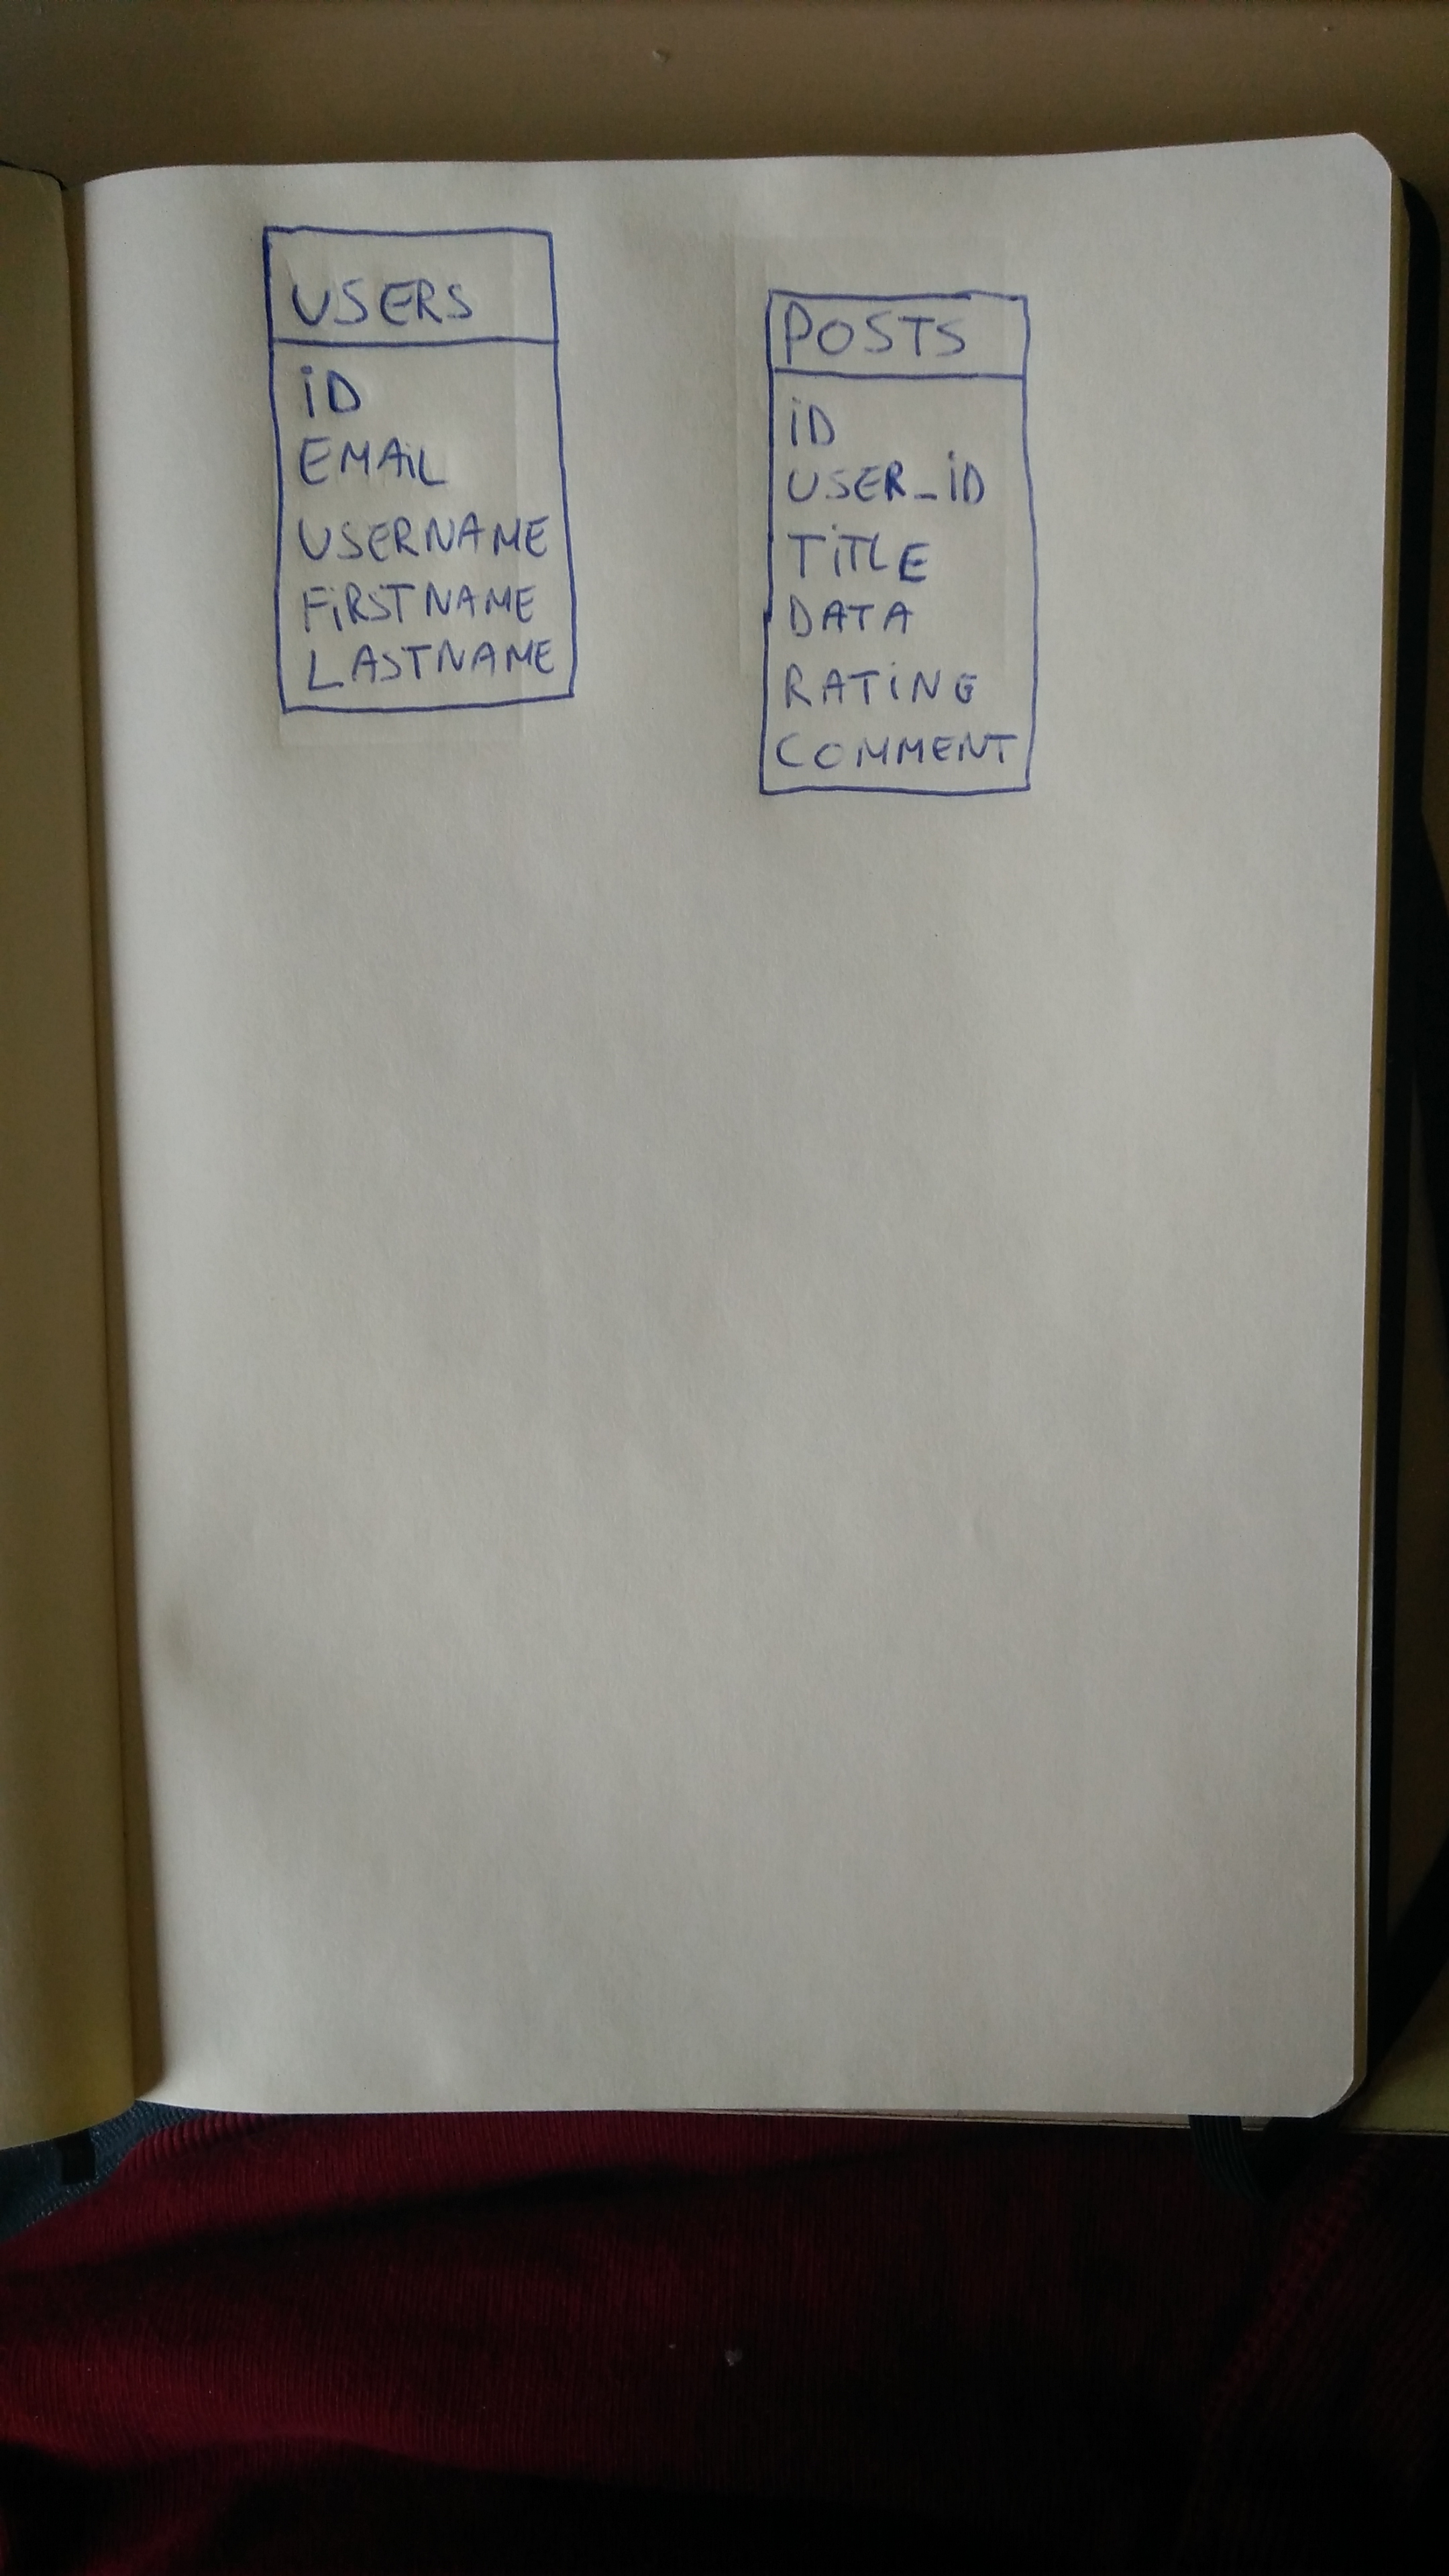 USERS
iD
EMAiL
USERNAME
FiRSTNAME
LASTNAME
POSTS
iD
USER_iD
TiTLE
DATA
RATiNG
COMMENT